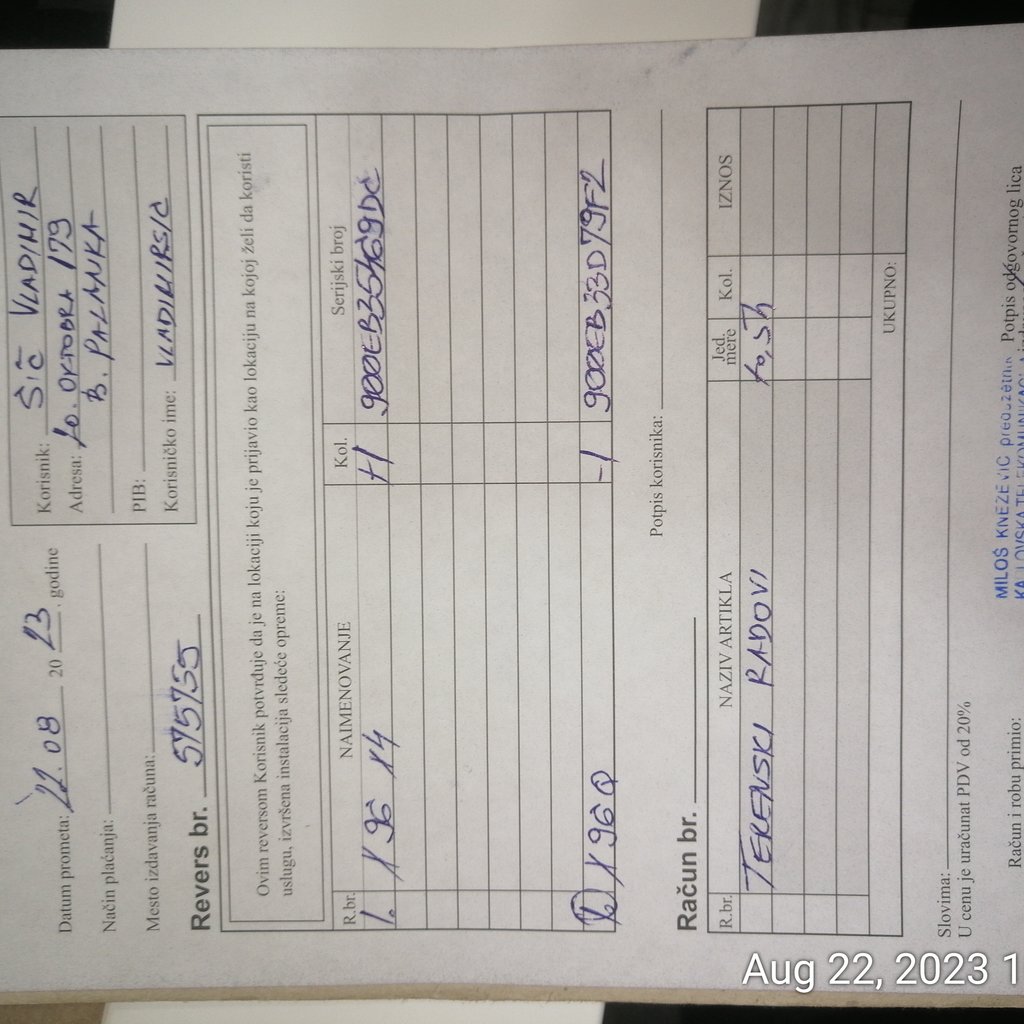 Datum prometa: 22.08 2023. godine
Način plaćanja:
Mesto izdavanja računa:
Korisnik: Šič VLADIMIR
Adresa: 10. OKTOBRA 179
B. PALANKA
PIB:
Korisničko ime: VLADIMIRSIC
Revers br. 575755
Ovim reversom Korisnik potvrđuje da je na lokaciji koju je prijavio kao lokaciju na kojoj želi da koristi
uslugu, izvršena instalacija sledeće opreme:
R.br. NAIMENOVANJE Kol. Serijski broj
1. H1
-1 900EB33D79F2
Potpis korisnika:
Račun br.
R.br. NAZIV ARTIKLA Jed. mere Kol. IZNOS
TERENSKI RADOVI
UKUPNO:
Slovima:
U cenu je uračunat PDV od 20%
Račun i robu primio:
MILOŠ KNEŽEVIĆ preduzetnik
Potpis odgovornog lica
Aug 22, 2023 1